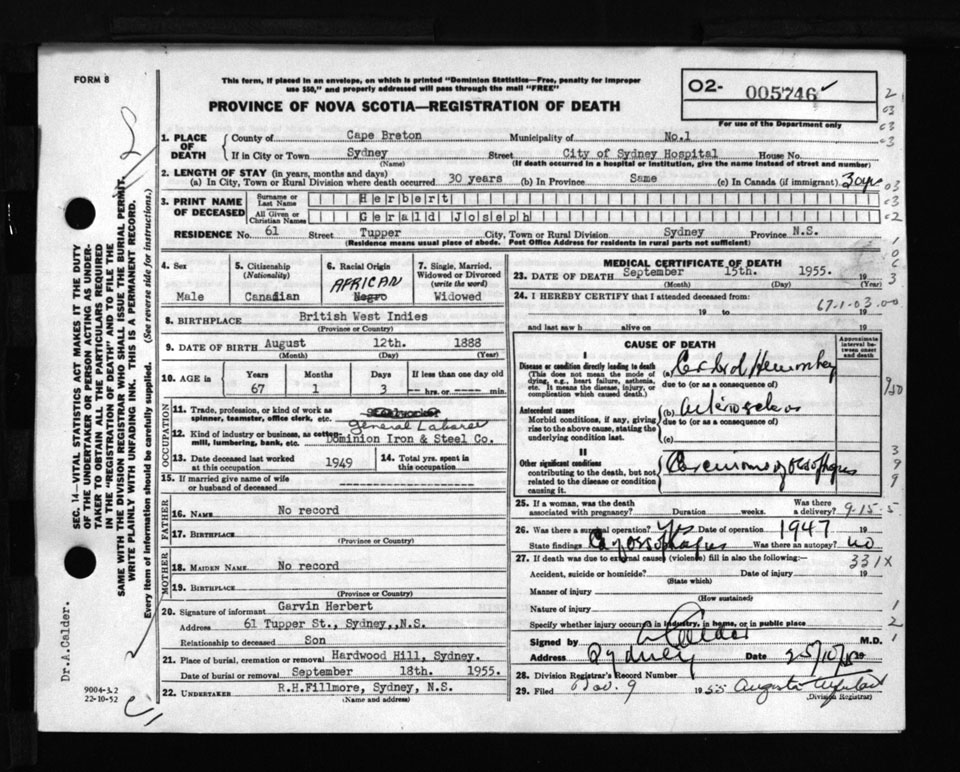 FORM 8
This form, if placed in an envelope, on which is printed "Dominion Statistics—Free, penalty for improper
use $50," and properly addressed will pass through the mail "FREE"
PROVINCE OF NOVA SCOTIA—REGISTRATION OF DEATH
O2- 005746
For use of the Department only
1. PLACE OF DEATH County of Cape Breton Municipality of No.1
If in City or Town Sydney Street City of Sydney Hospital House No.
(Name) (If death occurred in a hospital or institution, give the name instead of street and number)
2. LENGTH OF STAY (in years, months and days)
(a) In City, Town or Rural Division where death occurred 30 years (b) In Province Same (c) In Canada (if immigrant) 30 yrs
3. PRINT NAME OF DECEASED Surname or Last Name Herbert
All Given or Christian Names Gerald Joseph
RESIDENCE No. 61 Street Tupper City, Town or Rural Division Sydney Province N.S.
(Residence means usual place of abode. Post Office Address for residents in rural parts not sufficient)
4. Sex
Male
5. Citizenship (Nationality)
Canadian
6. Racial Origin
AFRICAN
Negro
7. Single, Married, Widowed or Divorced (write the word)
Widowed
8. BIRTHPLACE British West Indies
(Province or Country)
9. DATE OF BIRTH August 12th. 1888
(Month) (Day) (Year)
10. AGE in Years Months Days If less than one day old
67 1 3 hrs. or min.
OCCUPATION
11. Trade, profession, or kind of work as spinner, teamster, office clerk, etc.
General Laborer
12. Kind of industry or business, as cotton-mill, lumbering, bank, etc. Dominion Iron & Steel Co.
13. Date deceased last worked at this occupation 1949
14. Total yrs. spent in this occupation
15. If married give name of wife or husband of deceased
FATHER
16. NAME No record
17. BIRTHPLACE
(Province or Country)
MOTHER
18. MAIDEN NAME No record
19. BIRTHPLACE
(Province or Country)
20. Signature of informant Garvin Herbert
Address 61 Tupper St., Sydney,,N.S.
Relationship to deceased Son
21. Place of burial, cremation or removal Hardwood Hill, Sydney.
Date of burial or removal September 18th. 1955.
22. UNDERTAKER R.H.Fillmore, Sydney, N.S.
(Name and address)
MEDICAL CERTIFICATE OF DEATH
23. DATE OF DEATH September 15th. 1955. 19
(Month) (Day) (Year)
24. I HEREBY CERTIFY that I attended deceased from:
67-1-03.00
19 to 19
and last saw h alive on 19
CAUSE OF DEATH
Approximate interval between onset and death
I
Disease or condition directly leading to death
(This does not mean the mode of dying, e.g., heart failure, asthenia, etc. It means the disease, injury, or complication which caused death.)
(a)
due to (or as a consequence of)
Antecedent causes
Morbid conditions, if any, giving rise to the above cause, stating the underlying condition last.
(b)
due to (or as a consequence of)
(c)
II
Other significant conditions
contributing to the death, but not related to the disease or condition causing it.
25. If a woman, was the death associated with pregnancy? Duration weeks. Was there a delivery? 9-15-5
26. Was there a surgical operation? yes Date of operation 1947
State findings Was there an autopsy? no
27. If death was due to external causes (violence) fill in also the following:—
331X
Accident, suicide or homicide? Date of injury 19
(State which)
Manner of injury
(How sustained)
Nature of injury
Specify whether injury occurred in industry, in home, or in public place
Signed by A Calder M.D.
Address Sydney Date 25/10/
28. Division Registrar's Record Number
29. Filed Nov. 9 1955 Augusta
(Division Registrar)
SEC. 14—VITAL STATISTICS ACT MAKES IT THE DUTY
OF THE UNDERTAKER OR PERSON ACTING AS UNDER-
TAKER TO OBTAIN ALL THE PARTICULARS REQUIRED
IN THE "REGISTRATION OF DEATH" AND TO FILE THE
SAME WITH THE DIVISION REGISTRAR WHO SHALL ISSUE THE BURIAL PERMIT.
WRITE PLAINLY WITH UNFADING INK. THIS IS A PERMANENT RECORD.
Every item of information should be carefully supplied. (See reverse side for instructions.)
Dr.A.Calder.
9004-3.2
22-10-52